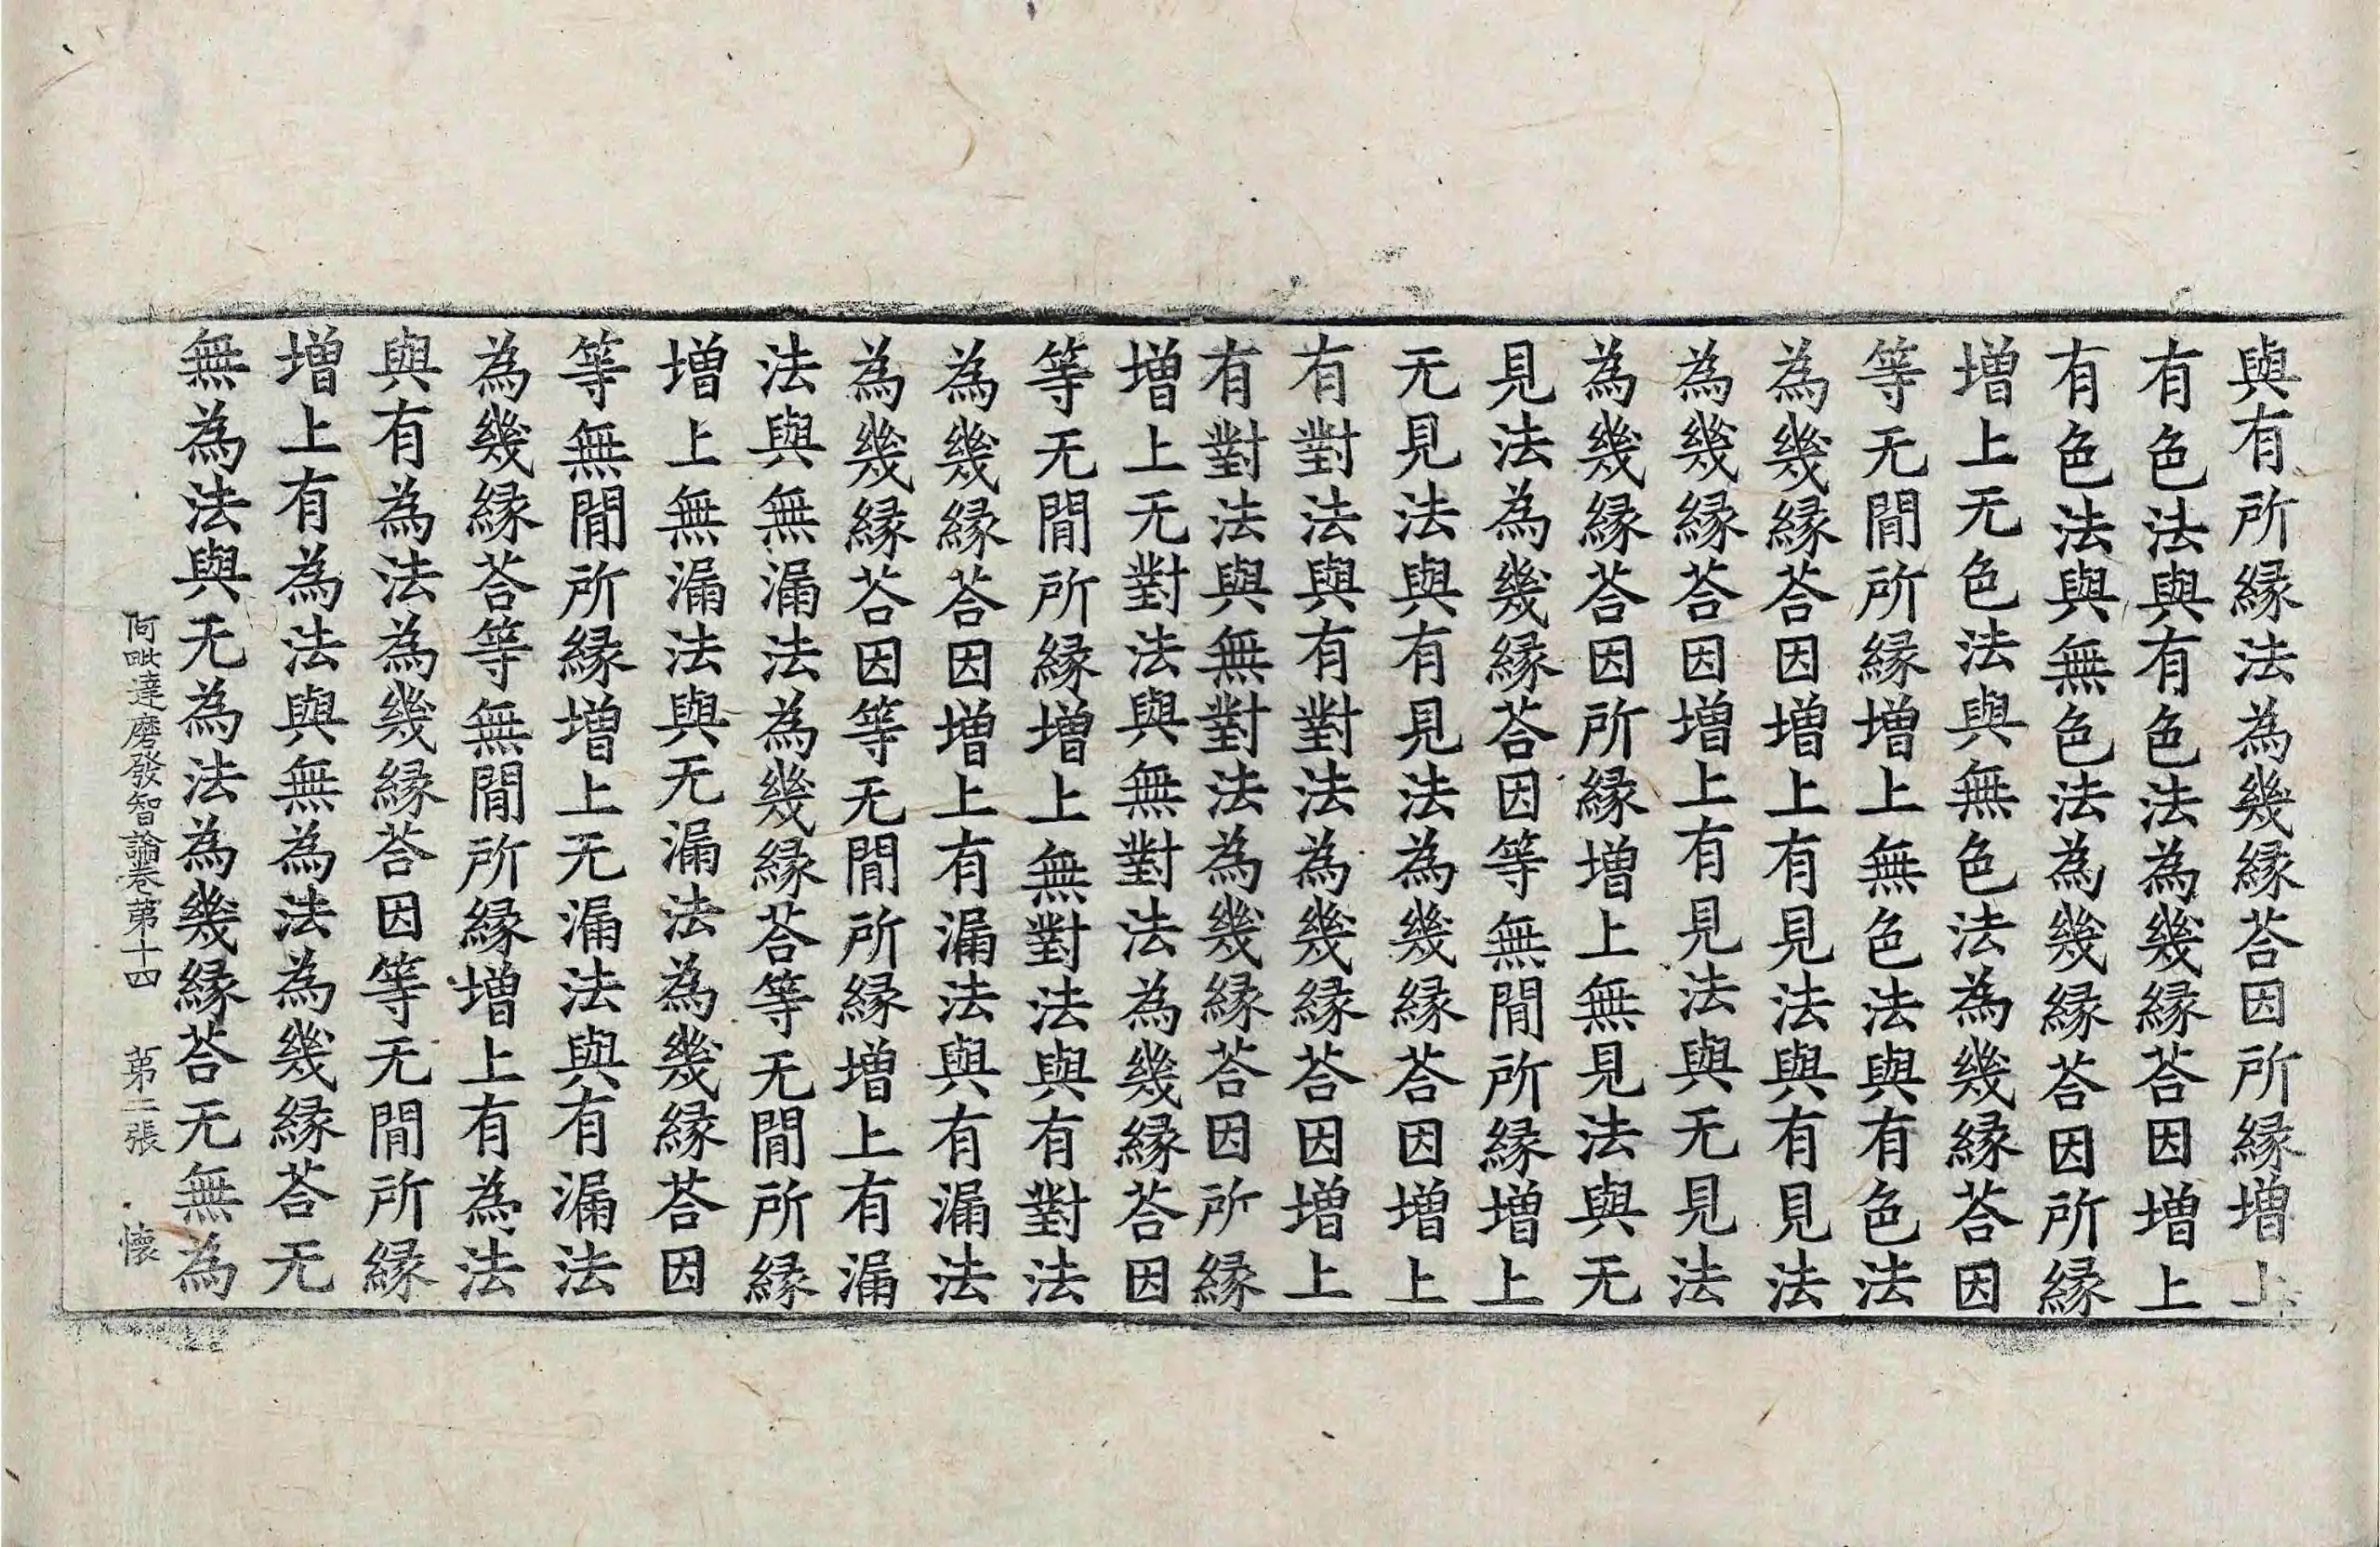 與有所縁法為幾縁荅因所縁增上
有色法與有色法為幾縁荅因增上
有色法與無色法為幾縁荅因所縁
增上无色法與無色法為幾縁荅因
等无閒所縁增上無色法與有色法
為幾縁荅因增上有見法與有見法
為幾縁荅因增上有見法與无見法
為幾縁荅因所縁增上無見法與无
見法為幾縁荅因等無閒所縁增上
无見法與有見法為幾縁荅因增上
有對法與有對法為幾縁荅因增上
有對法與無對法為幾縁荅因所縁
增上无對法與無對法為幾縁荅因
等无閒所縁增上無對法與有對法
為幾縁荅因增上有漏法與有漏法
為幾縁荅因等无閒所縁增上有漏
法與無漏法為幾縁荅等无閒所縁
增上無漏法與无漏法為幾縁荅因
等無閒所縁增上无漏法與有漏法
為幾縁荅等無閒所縁增上有為法
與有為法為幾縁荅因等无閒所縁
增上有為法與無為法為幾縁荅无
無為法與无為法為幾縁荅无無為
阿毗達磨發智論卷苐十四 苐二張 懷